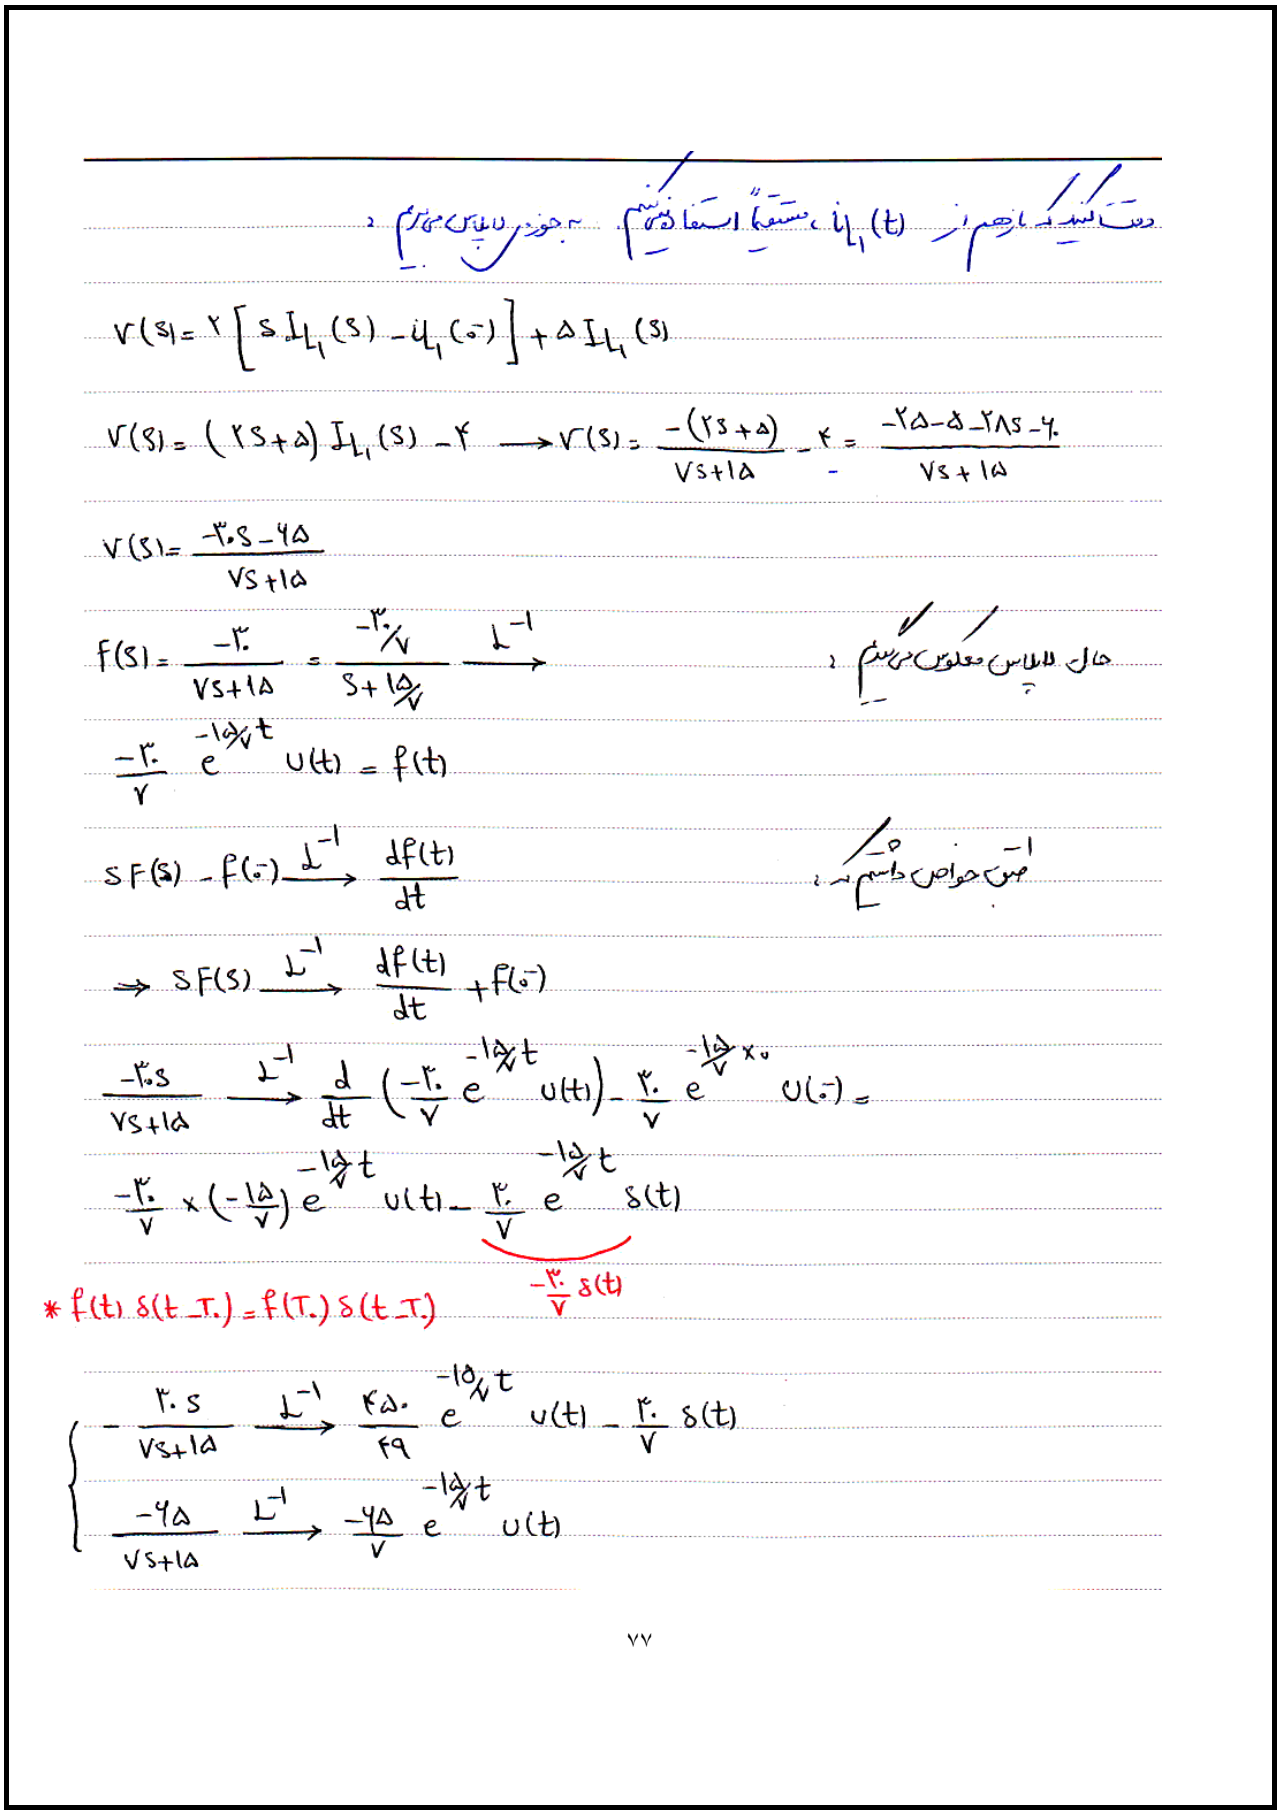 دقت کنید که باز هم از iL₁(t) مستقیماً استفاده نمی‌کنیم. به حوزه لاپلاس می‌بریم :
V(s) = ۲[s I_L₁(s) - i_L₁(۰⁻)] + ۵ I_L₁(s)
V(s) = (۲s+۵) I_L₁(s) - ۴ ⟶ V(s) = -(۲s+۵)/(۷s+۱۵) - ۴ = (-۲۵-۵-۲۸s-۶۰)/(۷s+۱۵)
V(s) = (-۳۰s-۶۵)/(۷s+۱۵)
حال لاپلاس معکوس می‌گیریم :
F(s) = -۳۰/(۷s+۱۵) = (-۳۰/۷)/(s+۱۵/۷) L⁻¹⟶
-۳۰/۷ e^(-۱۵/۷ t) u(t) = f(t)
طبق خواص داشتیم که :
sF(s) - f(۰⁻) L⁻¹⟶ df(t)/dt
⇒ sF(s) L⁻¹⟶ df(t)/dt + f(۰⁻)
-۳۰s/(۷s+۱۵) L⁻¹⟶ d/dt (-۳۰/۷ e^(-۱۵/۷ t) u(t)) - ۳۰/۷ e^(-۱۵/۷ × ۰) u(۰⁻) =
-۳۰/۷ × (-۱۵/۷) e^(-۱۵/۷ t) u(t) - ۳۰/۷ e^(-۱۵/۷ t) δ(t)
-۳۰/۷ δ(t)
* f(t) δ(t-T۰) = f(T۰) δ(t-T۰)
-۳۰s/(۷s+۱۵) L⁻¹⟶ ۴۵۰/۴۹ e^(-۱۵/۷ t) u(t) - ۳۰/۷ δ(t)
-۶۵/(۷s+۱۵) L⁻¹⟶ -۶۵/۷ e^(-۱۵/۷ t) u(t)
۷۷